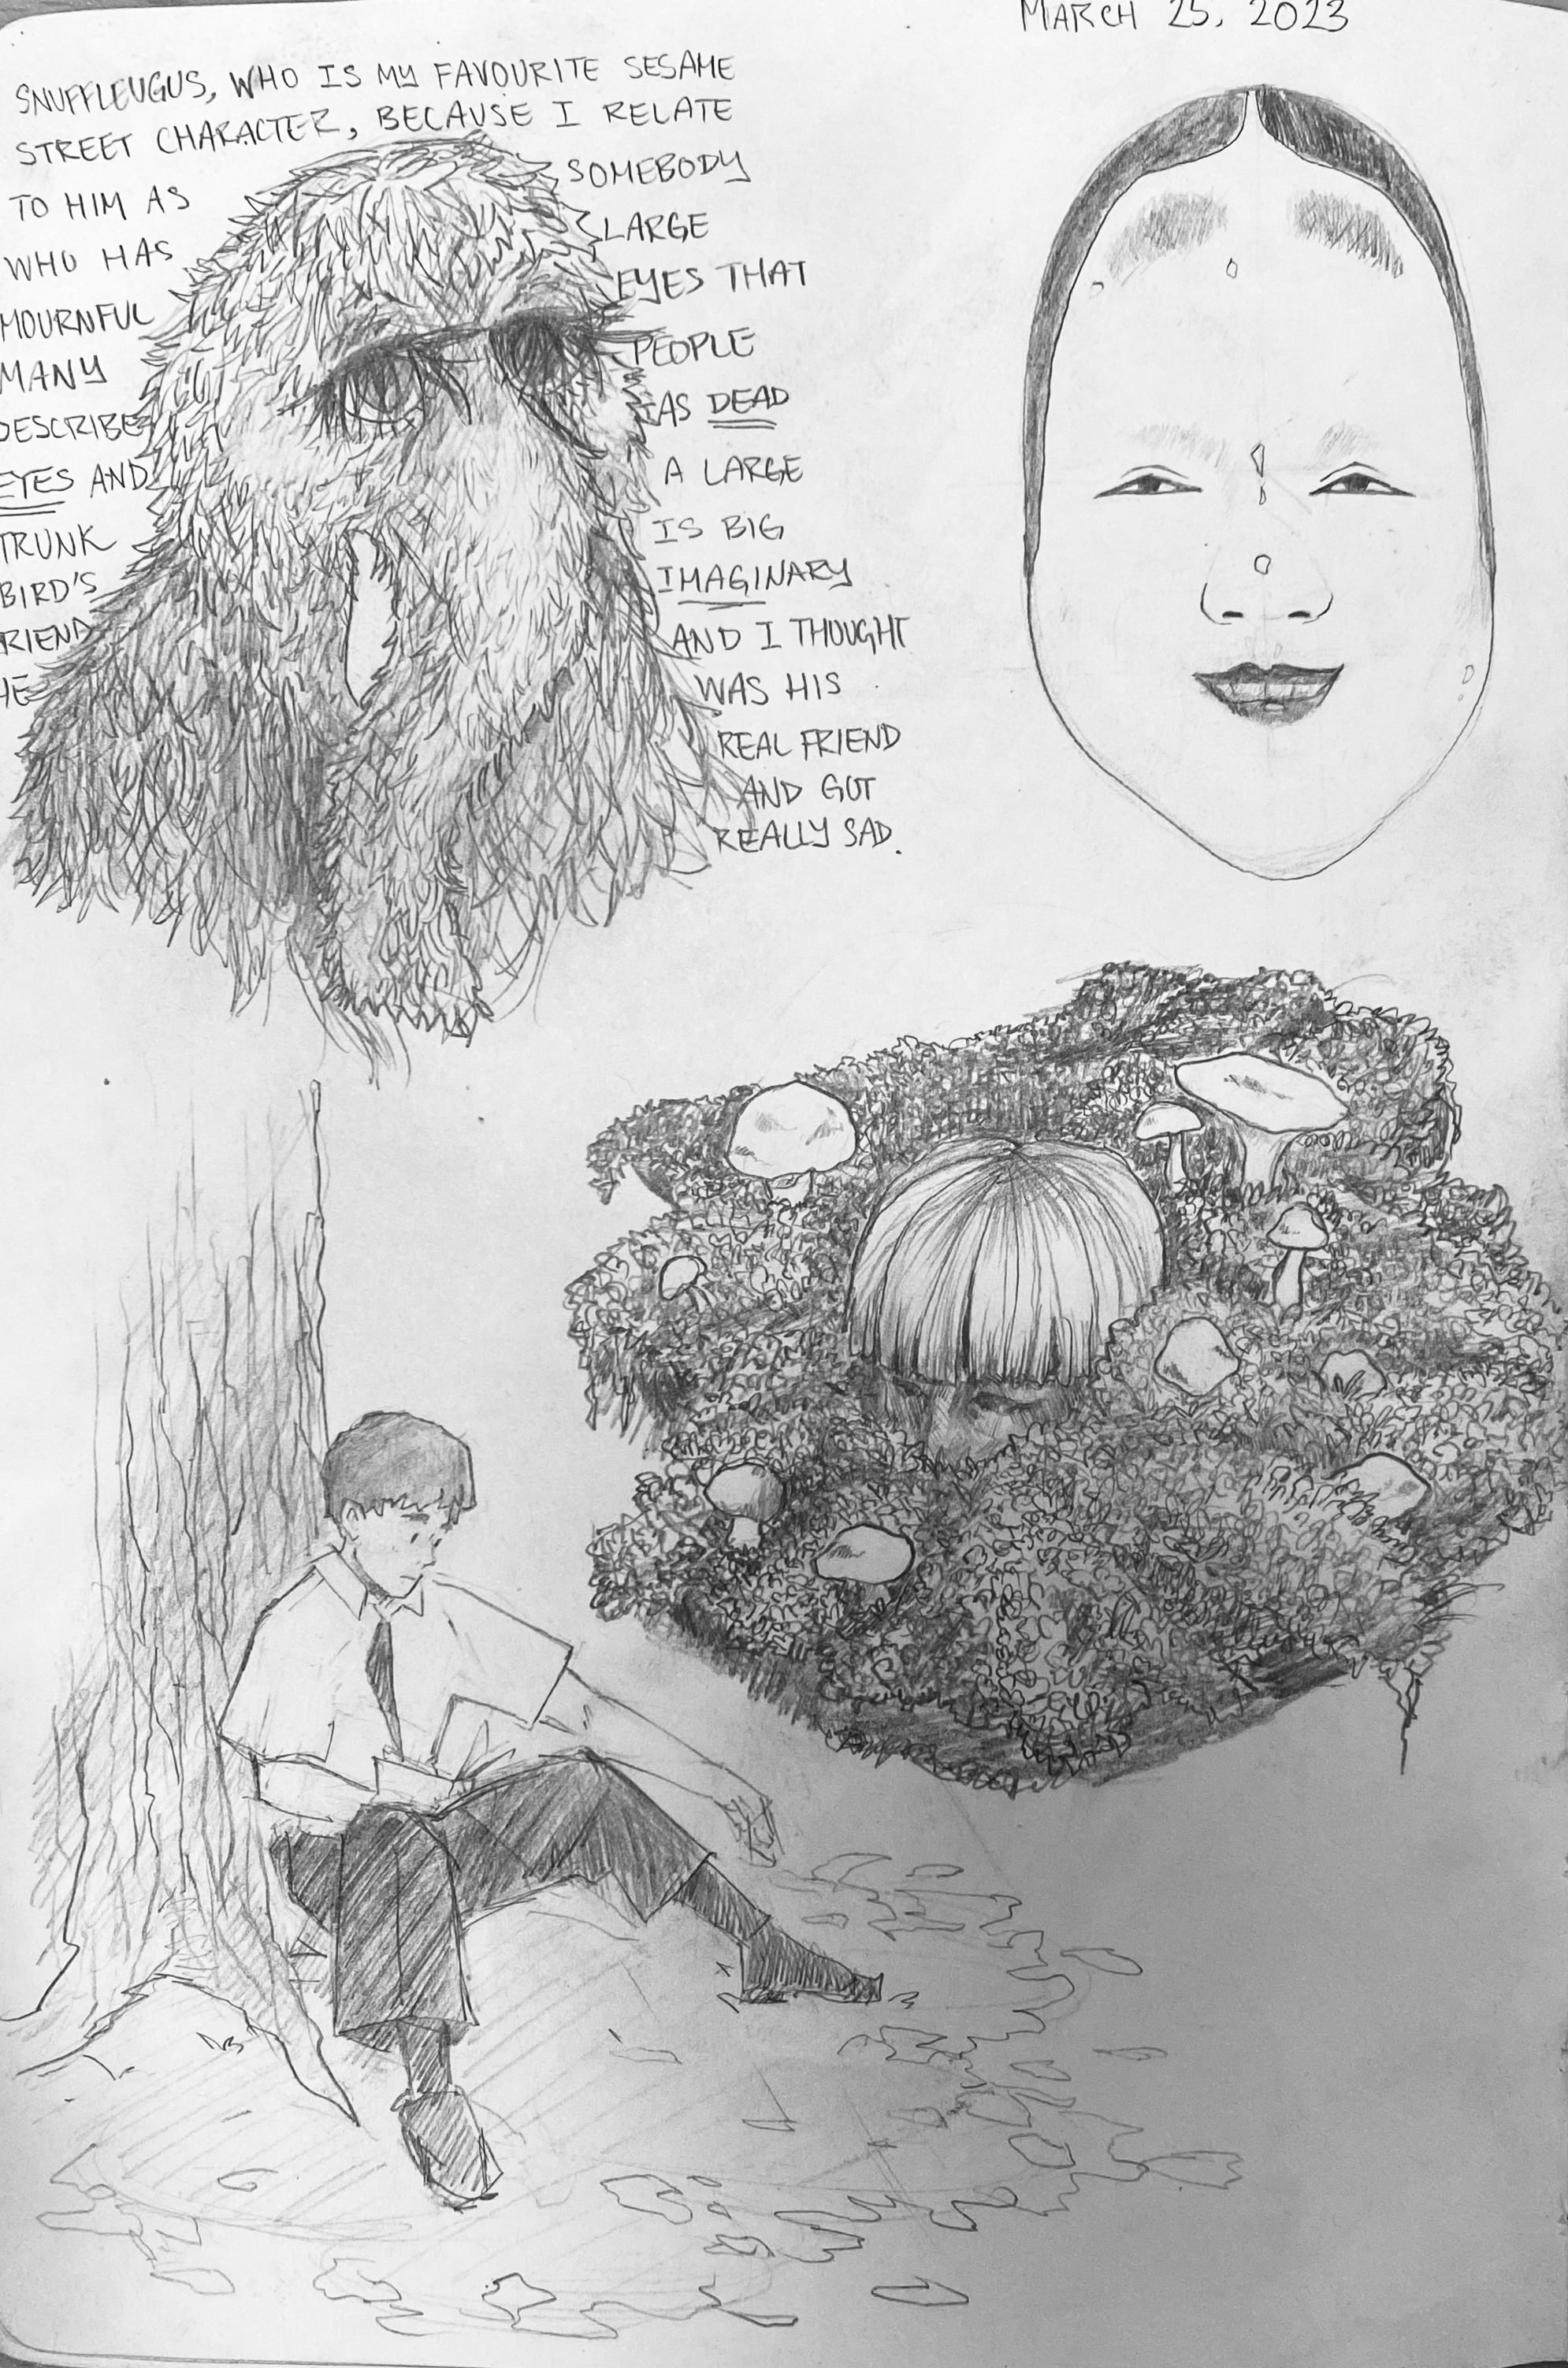 MARCH 25, 2023
SNUFFLEUGUS, WHO IS MY FAVOURITE SESAME
STREET CHARACTER, BECAUSE I RELATE
TO HIM AS SOMEBODY
WHO HAS LARGE
MOURNFUL EYES THAT
MANY PEOPLE
DESCRIBE AS DEAD
EYES AND A LARGE
TRUNK IS BIG
BIRD'S IMAGINARY
RIEND AND I THOUGHT
HE WAS HIS
REAL FRIEND
AND GOT
REALLY SAD.